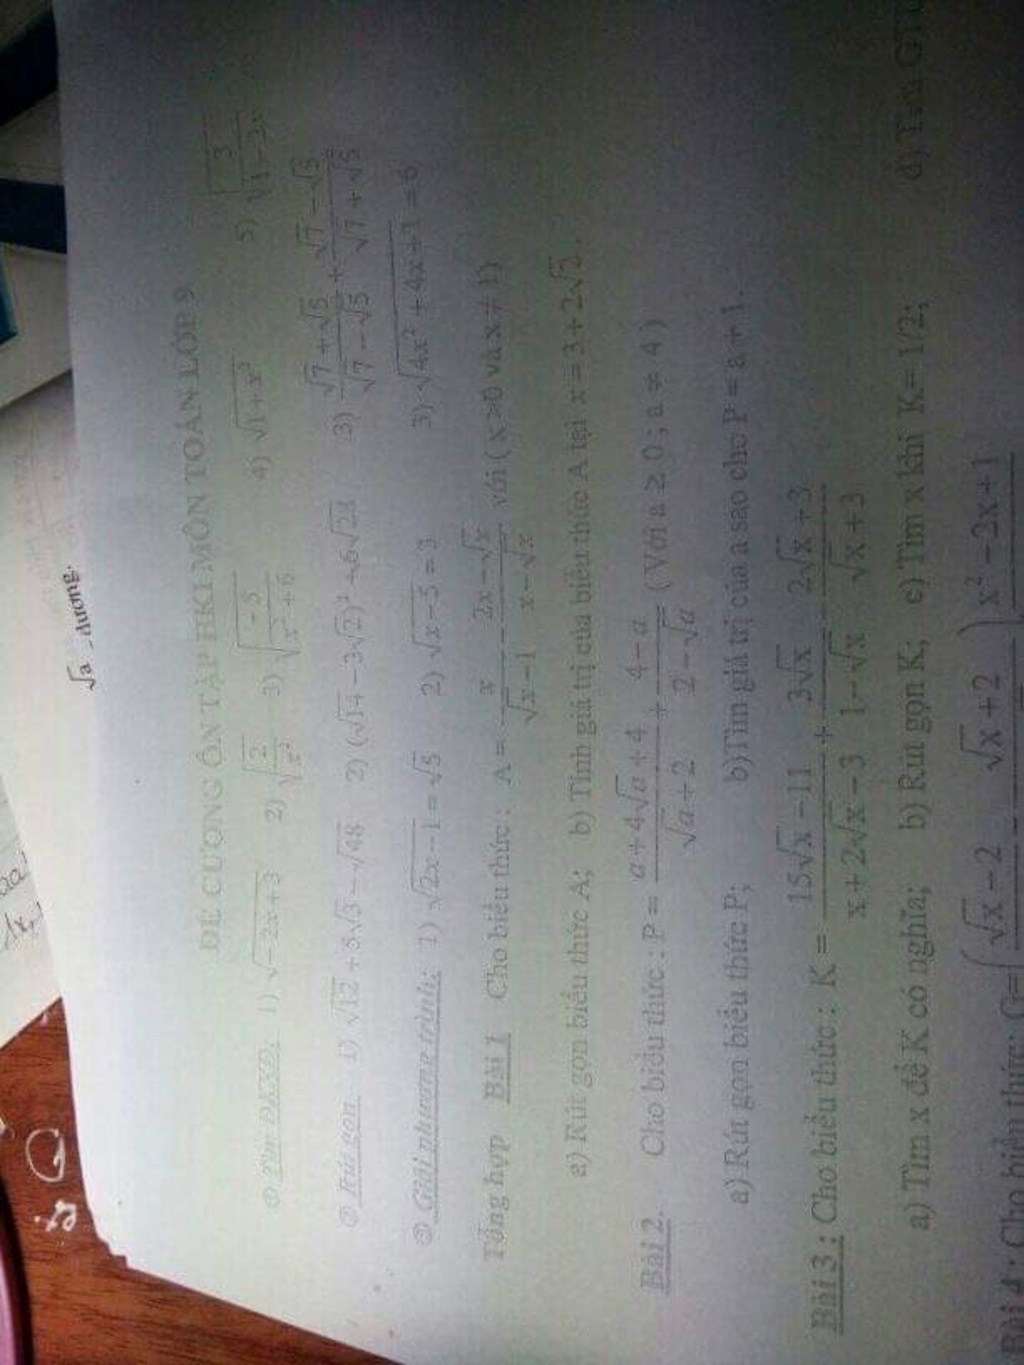 √a _ dương.
ĐỀ CƯƠNG ÔN TẬP HKI MÔN TOÁN LỚP 9
① Tìm ĐKXĐ: 1) √(-2x+3) 2) √(2/x²) 3) √(-5/(x²+6)) 4) √(1+x²) 5) √(3/(1-2x))
② Rút gọn 1) √12 + 5√3 - √48 2) (√14 - 3√2)² + 6√28 3) (√7+√5)/(√7-√5) + (√7-√5)/(√7+√5)
③ Giải phương trình: 1) √(2x-1) = √5 2) √(x-5) = 3 3) √(4x²+4x+1) = 6
Tổng hợp Bài 1 Cho biểu thức: A = x/(√x-1) - (2x-√x)/(x-√x) với ( x >0 và x ≠ 1)
a) Rút gọn biểu thức A; b) Tính giá trị của biểu thức A tại x = 3+2√2.
Bài 2. Cho biểu thức : P = (a+4√a+4)/(√a+2) + (4-a)/(2-√a) ( Với a ≥ 0 ; a ≠ 4 )
a) Rút gọn biểu thức P; b)Tìm giá trị của a sao cho P = a + 1.
Bài 3 : Cho biểu thức : K = (15√x-11)/(x+2√x-3) + 3√x/(1-√x) - (2√x+3)/(√x+3)
a) Tìm x để K có nghĩa; b) Rút gọn K; c) Tìm x khi K= 1/2; d) Tìm GTL
Bài 4 : Cho biểu thức: G= ( √x-2 √x+2 ) . x²-2x+1